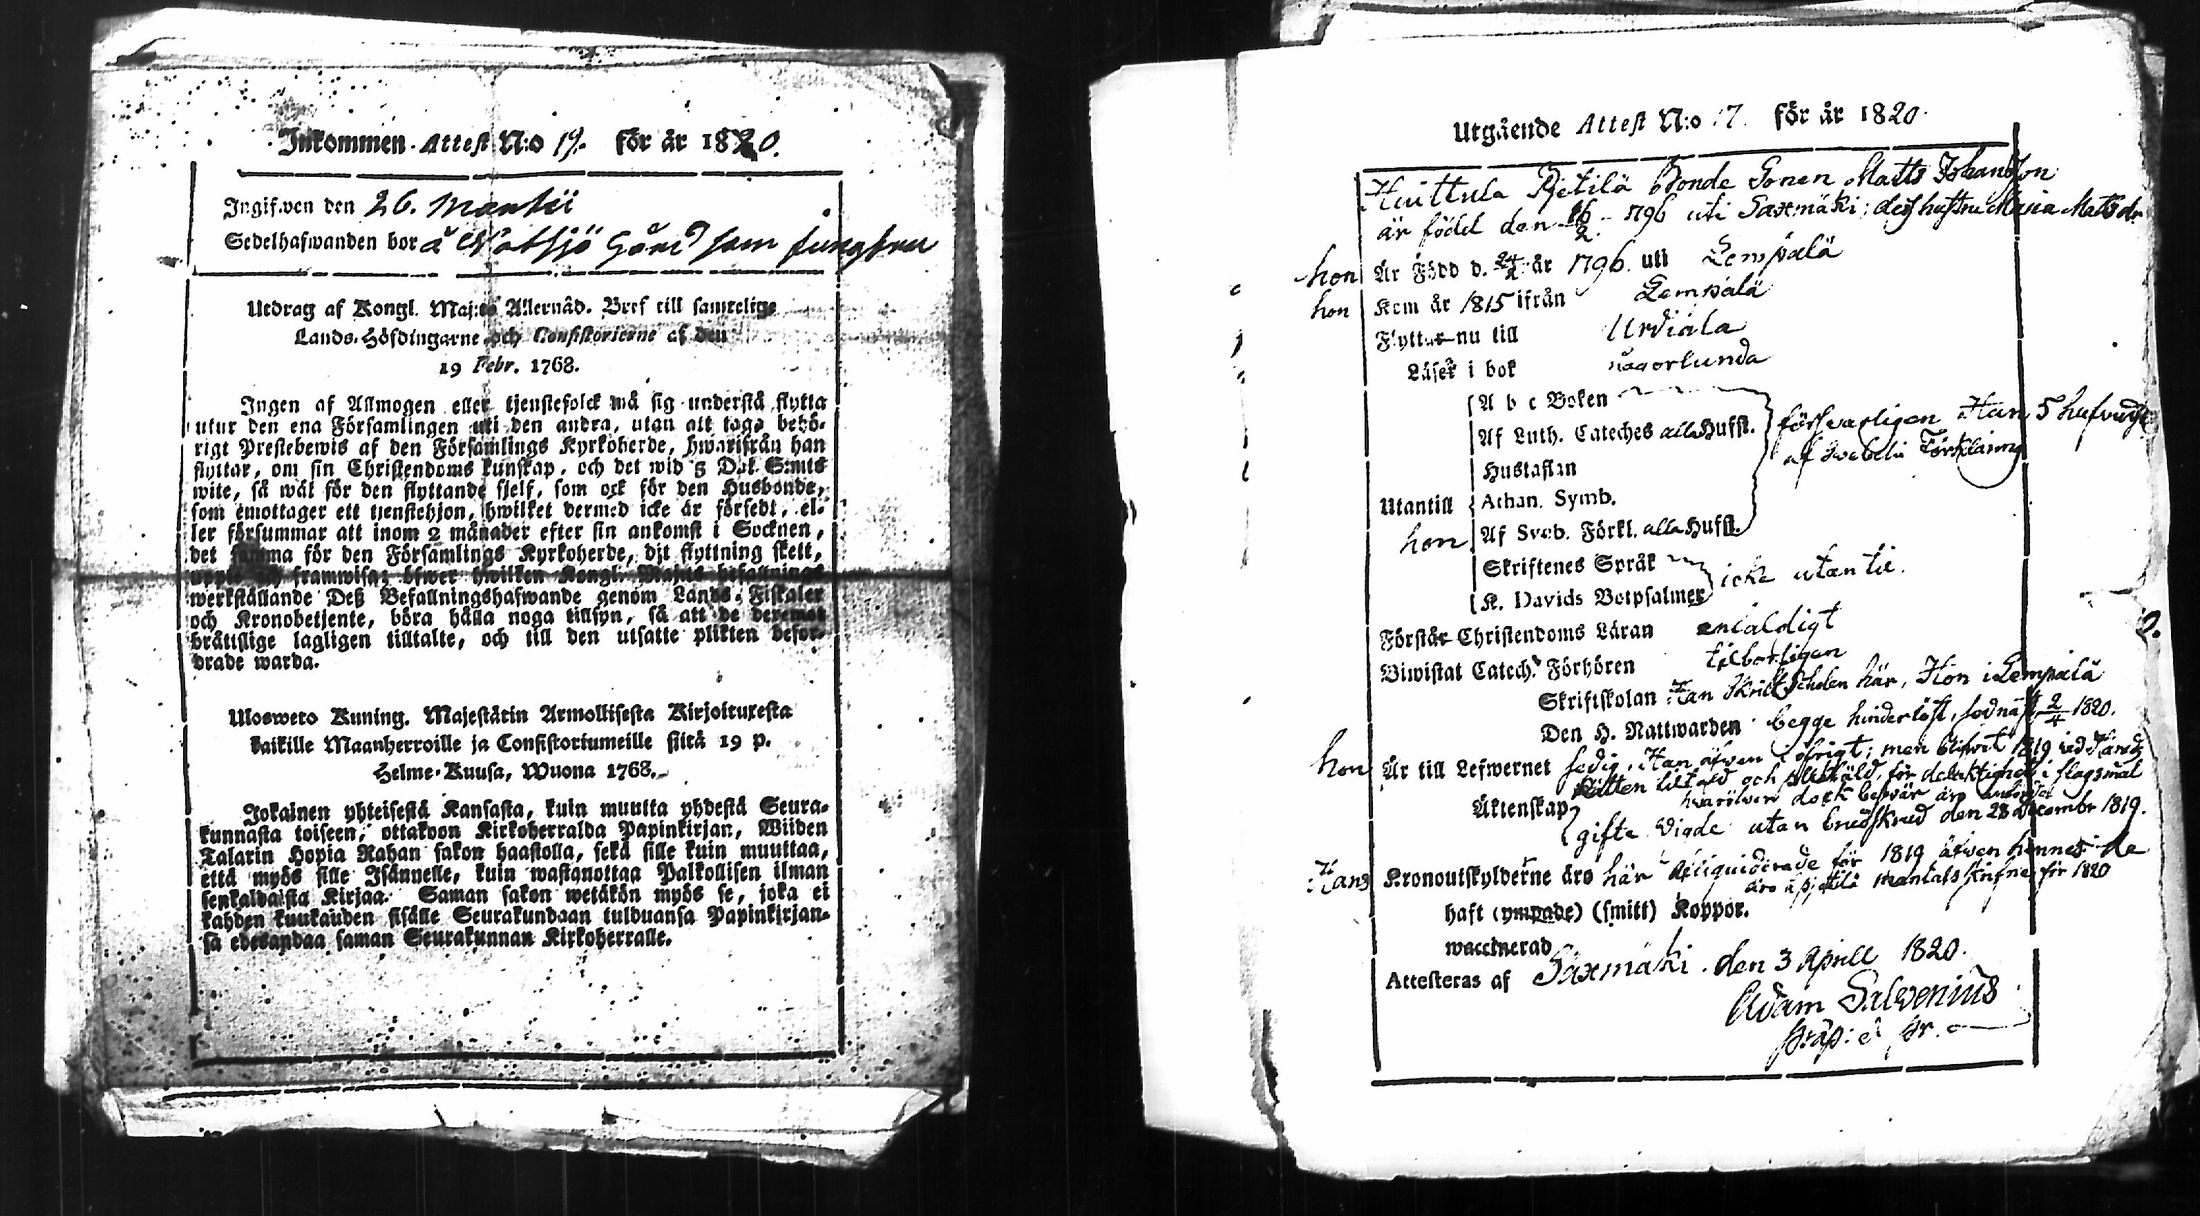 Inkommen Attest N:o 19. för år 1820.
Ingifwen den 26. Martii
Sedelhafwanden bor å Notsjö Gård som jungfru
Utdrag af Kongl. Maj:ts Allernåd. Bref till samtelige
Lands-Höfdingarne och Consistorierne af den
19 Febr. 1768.
Ingen af Allmogen eller tjenstefolck må sig understå flytta
utur den ena Församlingen uti den andra, utan att taga behö-
rigt Prestebewis af den Församlings Kyrkoherde, hwarifrån han
flyttar, om sin Christendoms kunskap, och det wid 5 Dal. S:mts
wite, så wäl för den flyttande sjelf, som ock för den Husbonde,
som emottager ett tjenstehjon, hwilket dermed icke är försedt, el-
ler försummar att inom 2 månader efter sin ankomst i Socknen,
det samma för den Församlings Kyrkoherde, dit flyttning skett,
framwisa; öfwer hwilken Kongl. Maj:ts befallnings
werkställande Deß Befallningshafwande genom Lands-Fiskaler
och Kronobetjente, böra hålla noga tillsyn, så att de deremot
bråttslige lagligen tilltalte, och till den utsatte plikten befor-
drade warda.
Ulosweto Kuning. Majestätin Armollisesta Kirjoituxesta
kaikille Maanherroille ja Consistoriumeille siltä 19 p.
Helme-Kuusa, Wuona 1768.
Jokainen yhteisestä Kansasta, kuin muutta yhdestä Seura-
kunnasta toiseen, ottakoon Kirkoherralda Papinkirjan, Wiiden
Talarin Hopia Rahan sakon haastolla, sekä sille kuin muuttaa,
että myös sille Isännelle, kuin wastanottaa Palkollisen ilman
senkaldaista Kirjaa. Saman sakon wetäkön myös se, joka ei
kahden kuukauden sisälle Seurakundaan tulduansa Papinkirjan-
sa edesandaa saman Seurakunnan Kirkoherralle.
Utgående Attest N:o 17. för år 1820.
Huittula Pjetilä Bonde Sonen Matts Johansson
är född den 16/2 1796 uti Saxmäki; deß hustru Maria Matsdr
hon Är Född d. 24/2 år 1796. uti Lempälä
hon Kom år 1815 ifrån Lempälä
Flyttar nu till Urdiala
Läser i bok någorlunda
A b c Boken
Af Luth. Cateches alla Hufst. försvarligen Han 5 hufvudst
Hustaflan af Svebelii Förklaring
Utantill Athan. Symb.
hon Af Sveb. Förkl. alla Hufst.
Skriftenes Språk icke utantil.
K. Davids Botpsalmer
Förstår Christendoms Läran enfaldigt
Biwistat Catech. Förhören tilbörligen
Skriftskolan Han Skrift Scholen här, Hon i Lempälä
Den H. Nattwarden begge hinderlöst, sednast 2/4 1820.
hon Är till Lefwernet sedig, Han äfwen i öfrigt; men blifwit 1819 vid Tings
Rätten tiltald och för delaktighet i slagsmål
hvaröfver dock besvär äro
Äktenskap gifte Vigde utan brudskrud den 28 Decembr 1819.
Hans Kronoutskylderne äro här liquiderade för 1819 äfwen hennes de
äro å Pjetilä mantalsskrifne för 1820
haft (ympade) (smitt) Koppor.
waccinerad
Attesteras af Saxmäki den 3 Aprill 1820.
Adam Salvenius
Präp: et Pr.